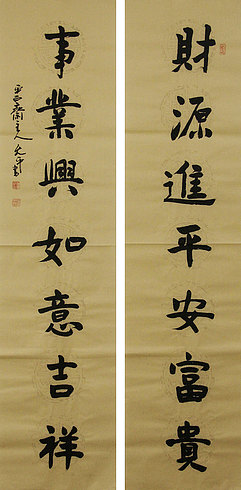 財源進平安富貴
事業興如意吉祥